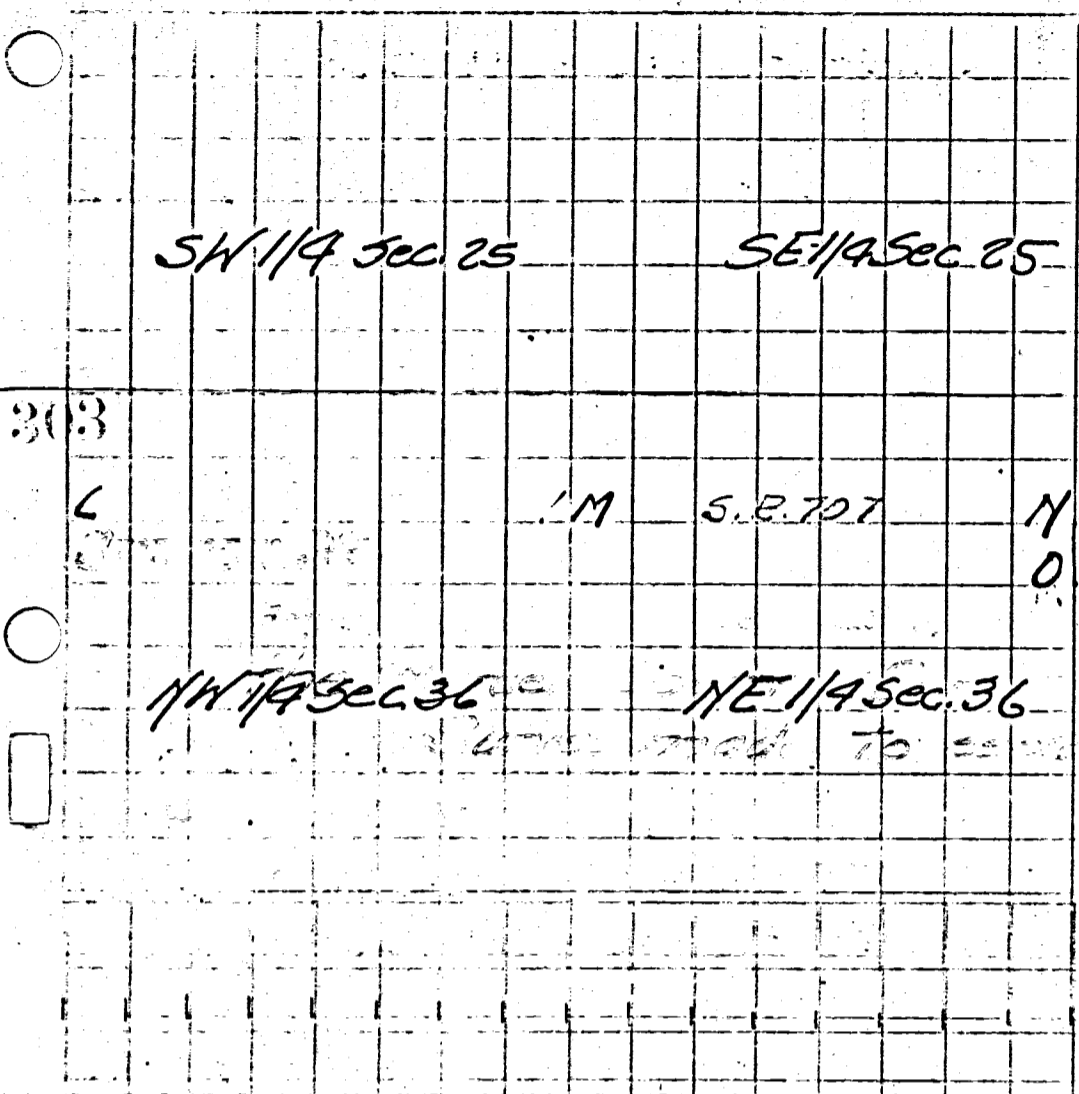 SW 1/4 Sec. 25 SE 1/4 Sec. 25
303
L M S.E. 707 N
O
NW 1/4 Sec. 36 NE 1/4 Sec. 36
To